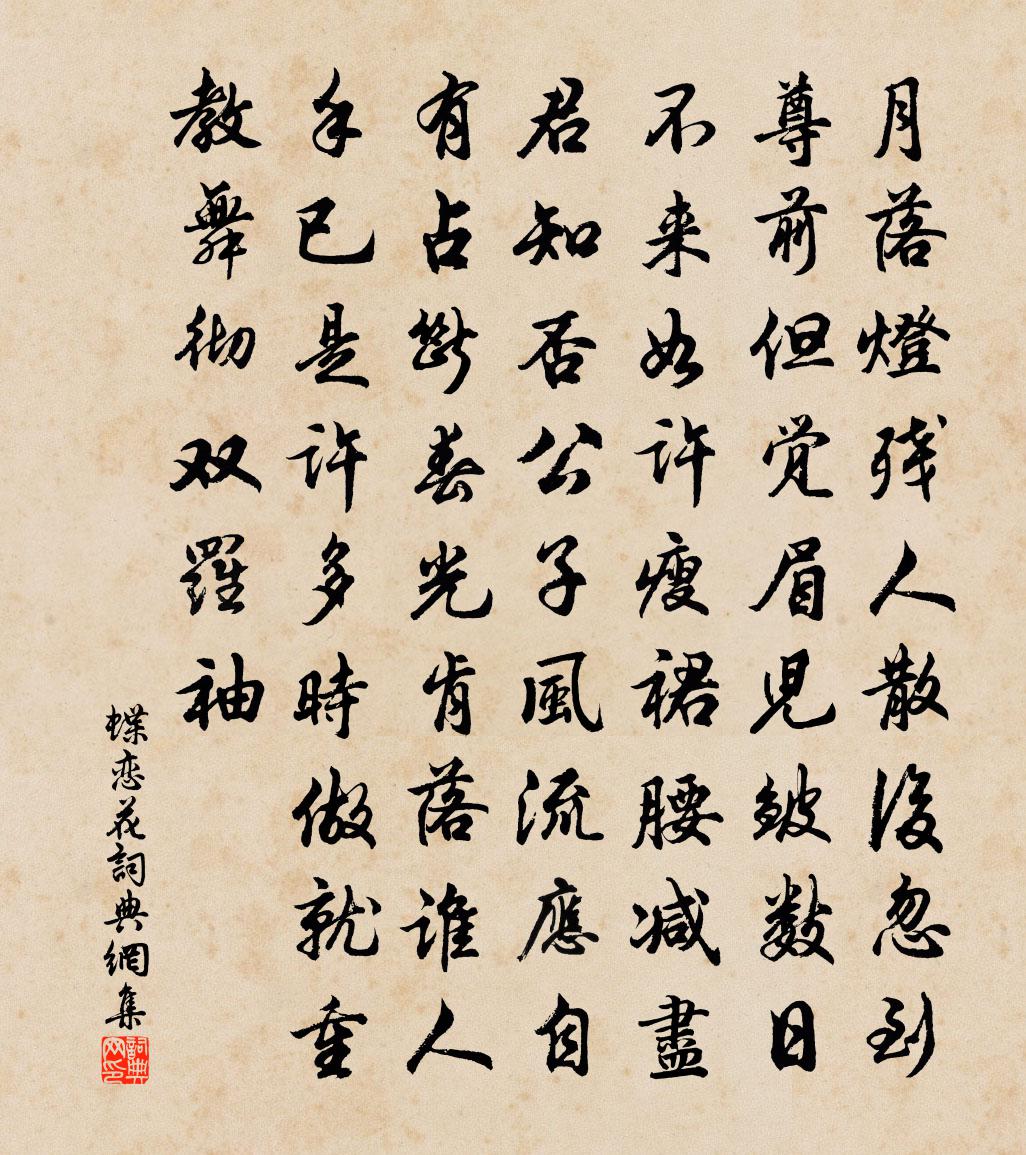 月落燈残人散後忽到
尊前但覚眉児皴数日
不来如许瘦裙腰减盡
君知否公子風流應自
有占斷春光肯落谁人
手已是许多時做就重
教舞彻双羅袖
蝶恋花詞典網集
詞典网印